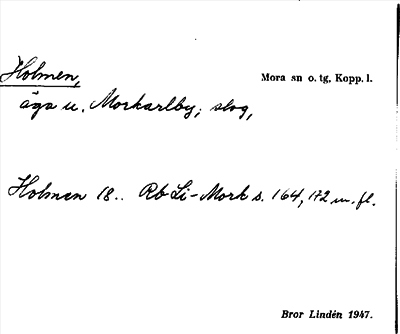 Holmen,
Mora sn o. tg, Kopp. l.
äga u. Morkarlby; slog,
Holmen 18.. Rb Li-Mork s. 164, 172 m. fl.
Bror Lindén 1947.